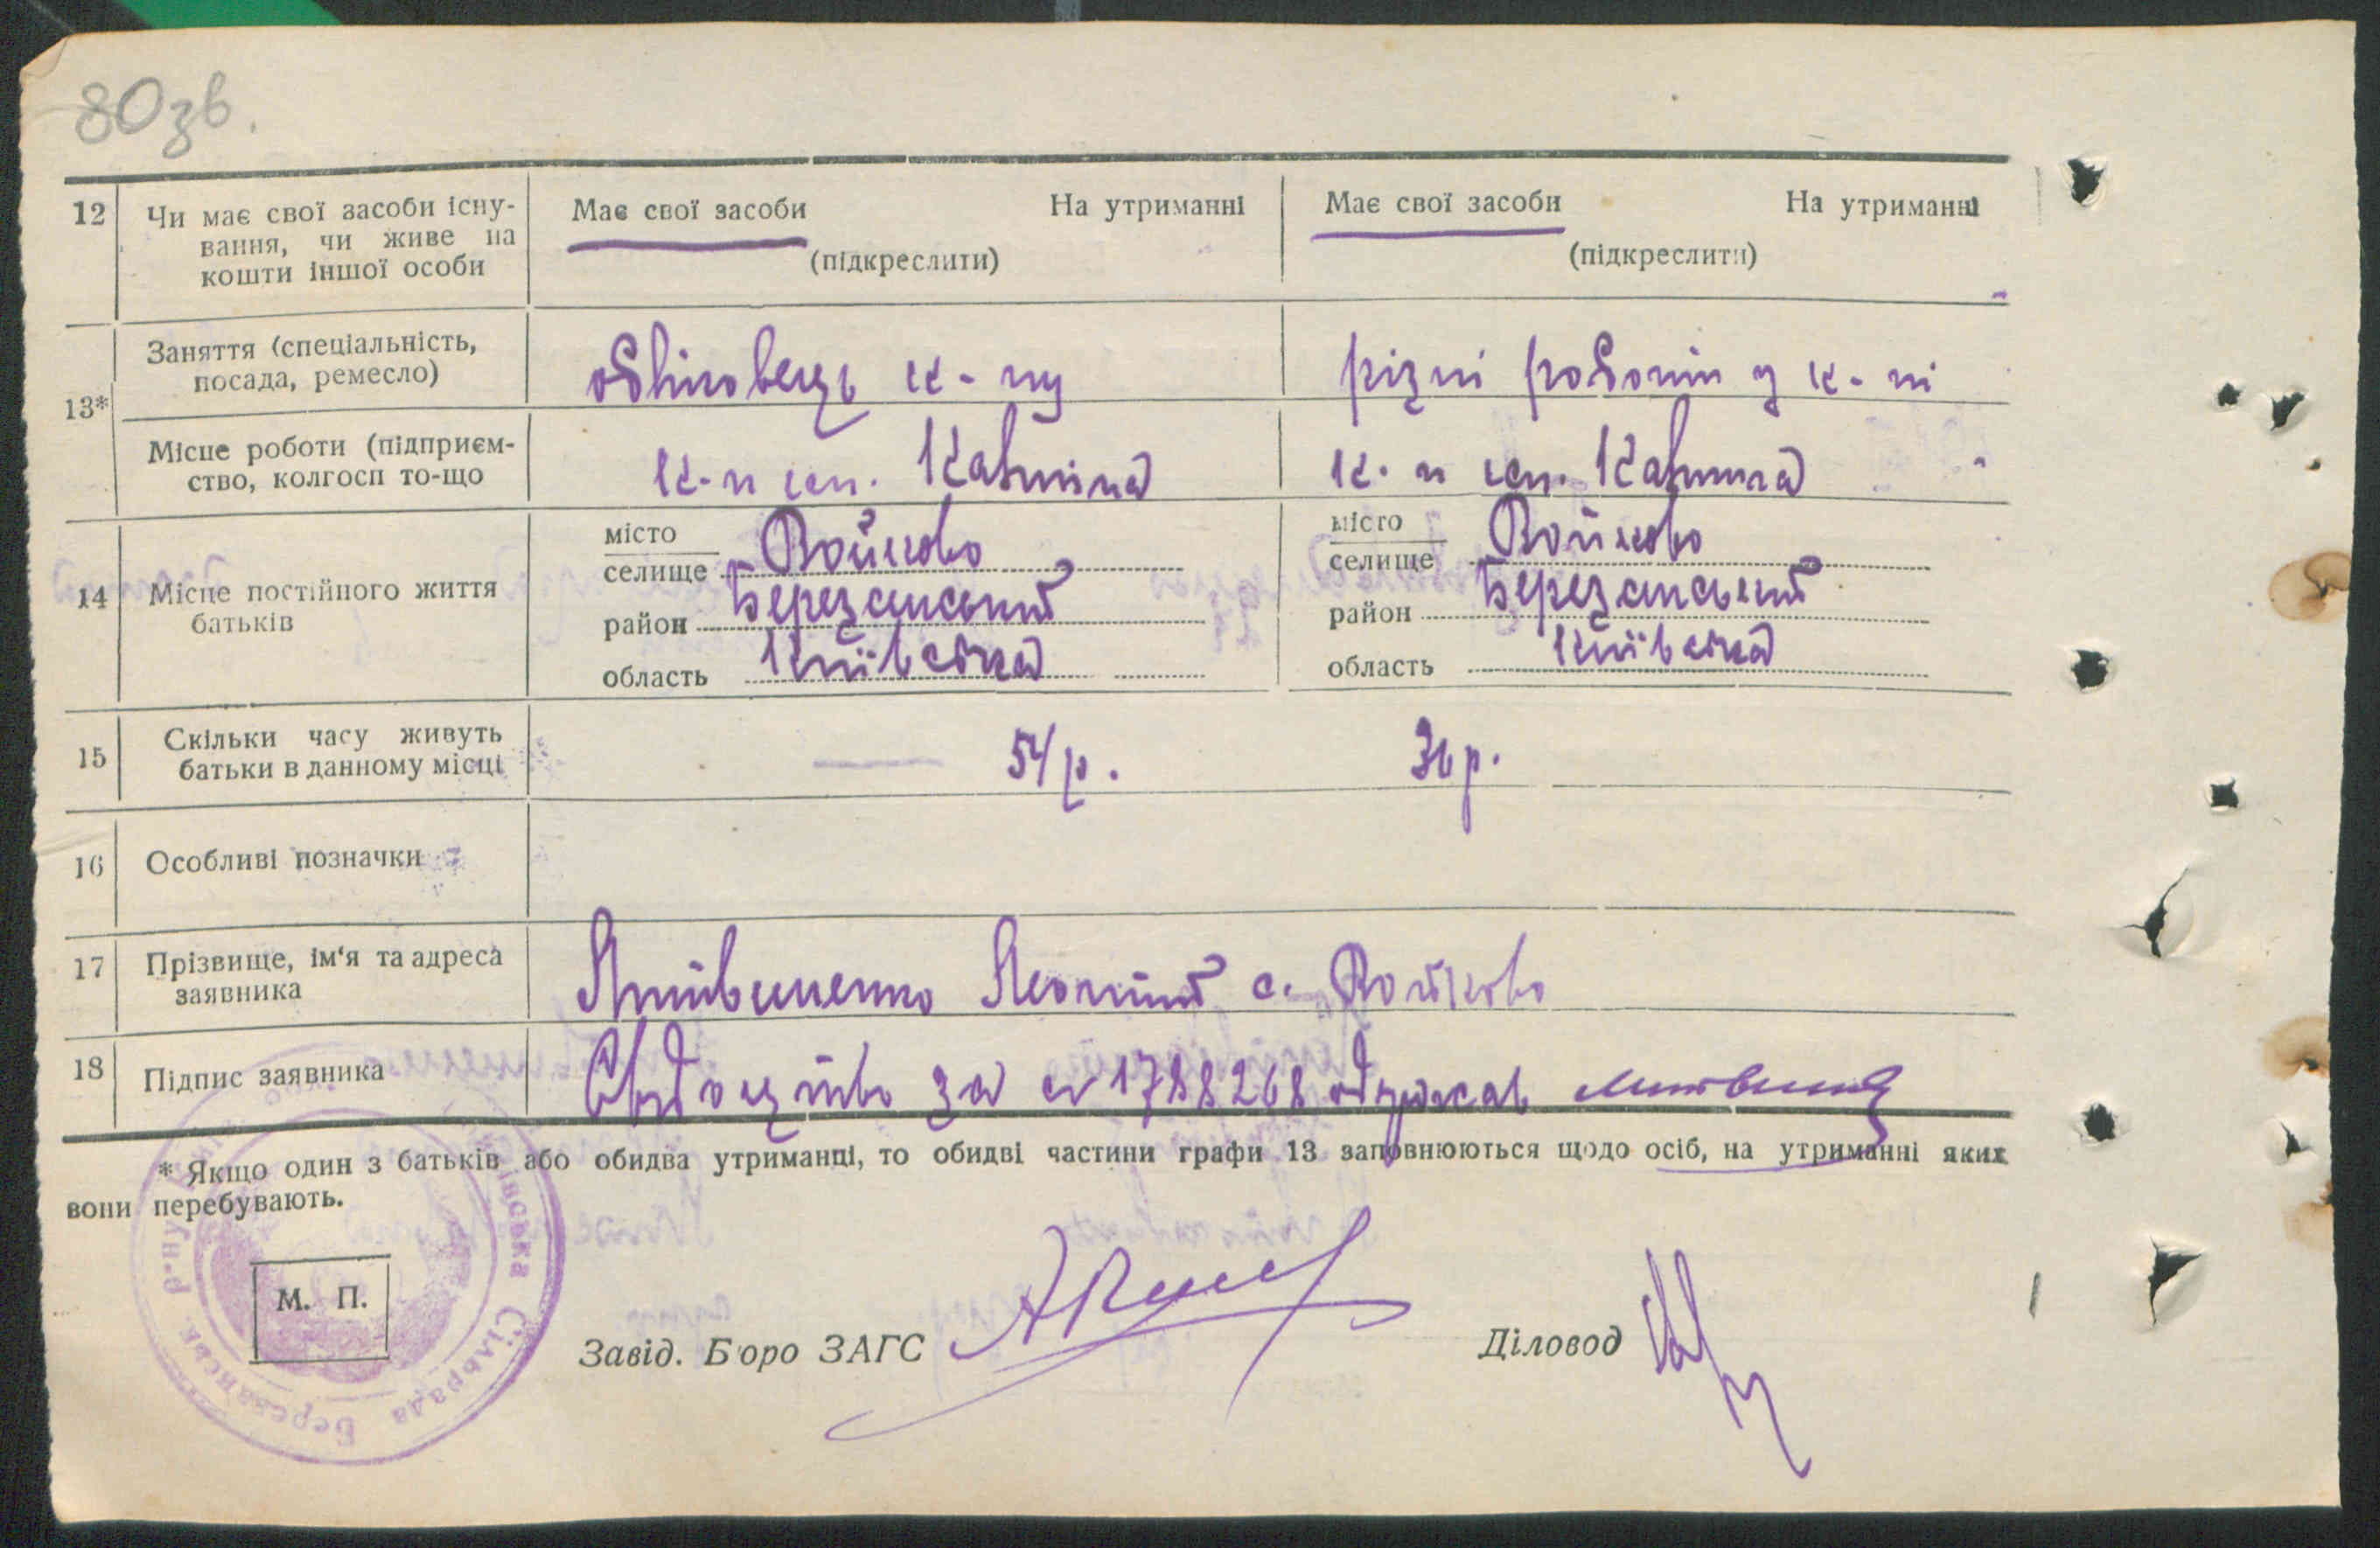 80зв.
12
Чи має свої засоби існу-
вання, чи живе на
кошти іншої особи
Має свої засоби На утриманні
(підкреслити)
Має свої засоби На утриманні
(підкреслити)
13*
Заняття (спеціальність,
посада, ремесло)
обліковець к-пу
різні роботи у к-пі
Місце роботи (підприєм-
ство, колгосп то-що
к-п ім. Калініна
к-п ім. Калініна
14
Місце постійного життя
батьків
місто
селище Войково
район Березанський
область Київська
місто
селище Войково
район Березанський
область Київська
15
Скільки часу живуть
батьки в данному місці
54 р.
36 р.
16
Особливі позначки
17
Прізвище, ім'я та адреса
заявника
Литвиненко с. Войково
18
Підпис заявника
Свідоцтво за № 1788268 одержав
* Якщо один з батьків або обидва утриманці, то обидві частини графи 13 заповнюються щодо осіб, на утриманні яких
вони перебувають.
М. П.
Завід. Бюро ЗАГС
Діловод
Сільрада Березанськ. р-ну